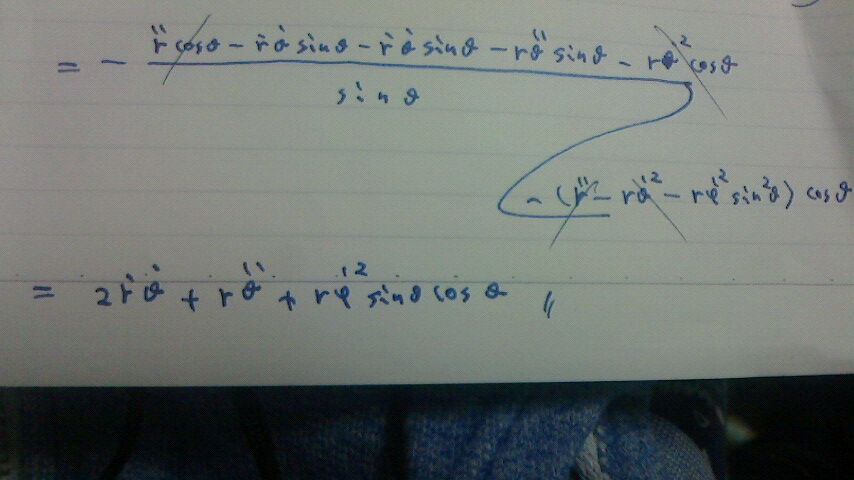 = - r̈ cosθ - ṙ θ̇ sinθ - ṙ θ̇ sinθ - r θ̈ sinθ - r θ̇² cosθ
sinθ
- (r̈ - r θ̇² - r φ̇² sin²θ) cosθ
= 2 ṙ θ̇ + r θ̈ + r φ̇² sinθ cosθ //